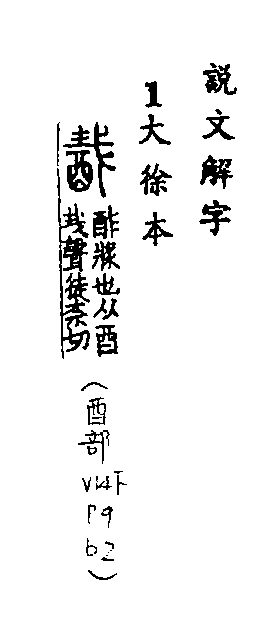 説文解字
1大徐本
酨
酢漿也从酉
𢦏聲徒奈切
(酉部V14下P9b2)